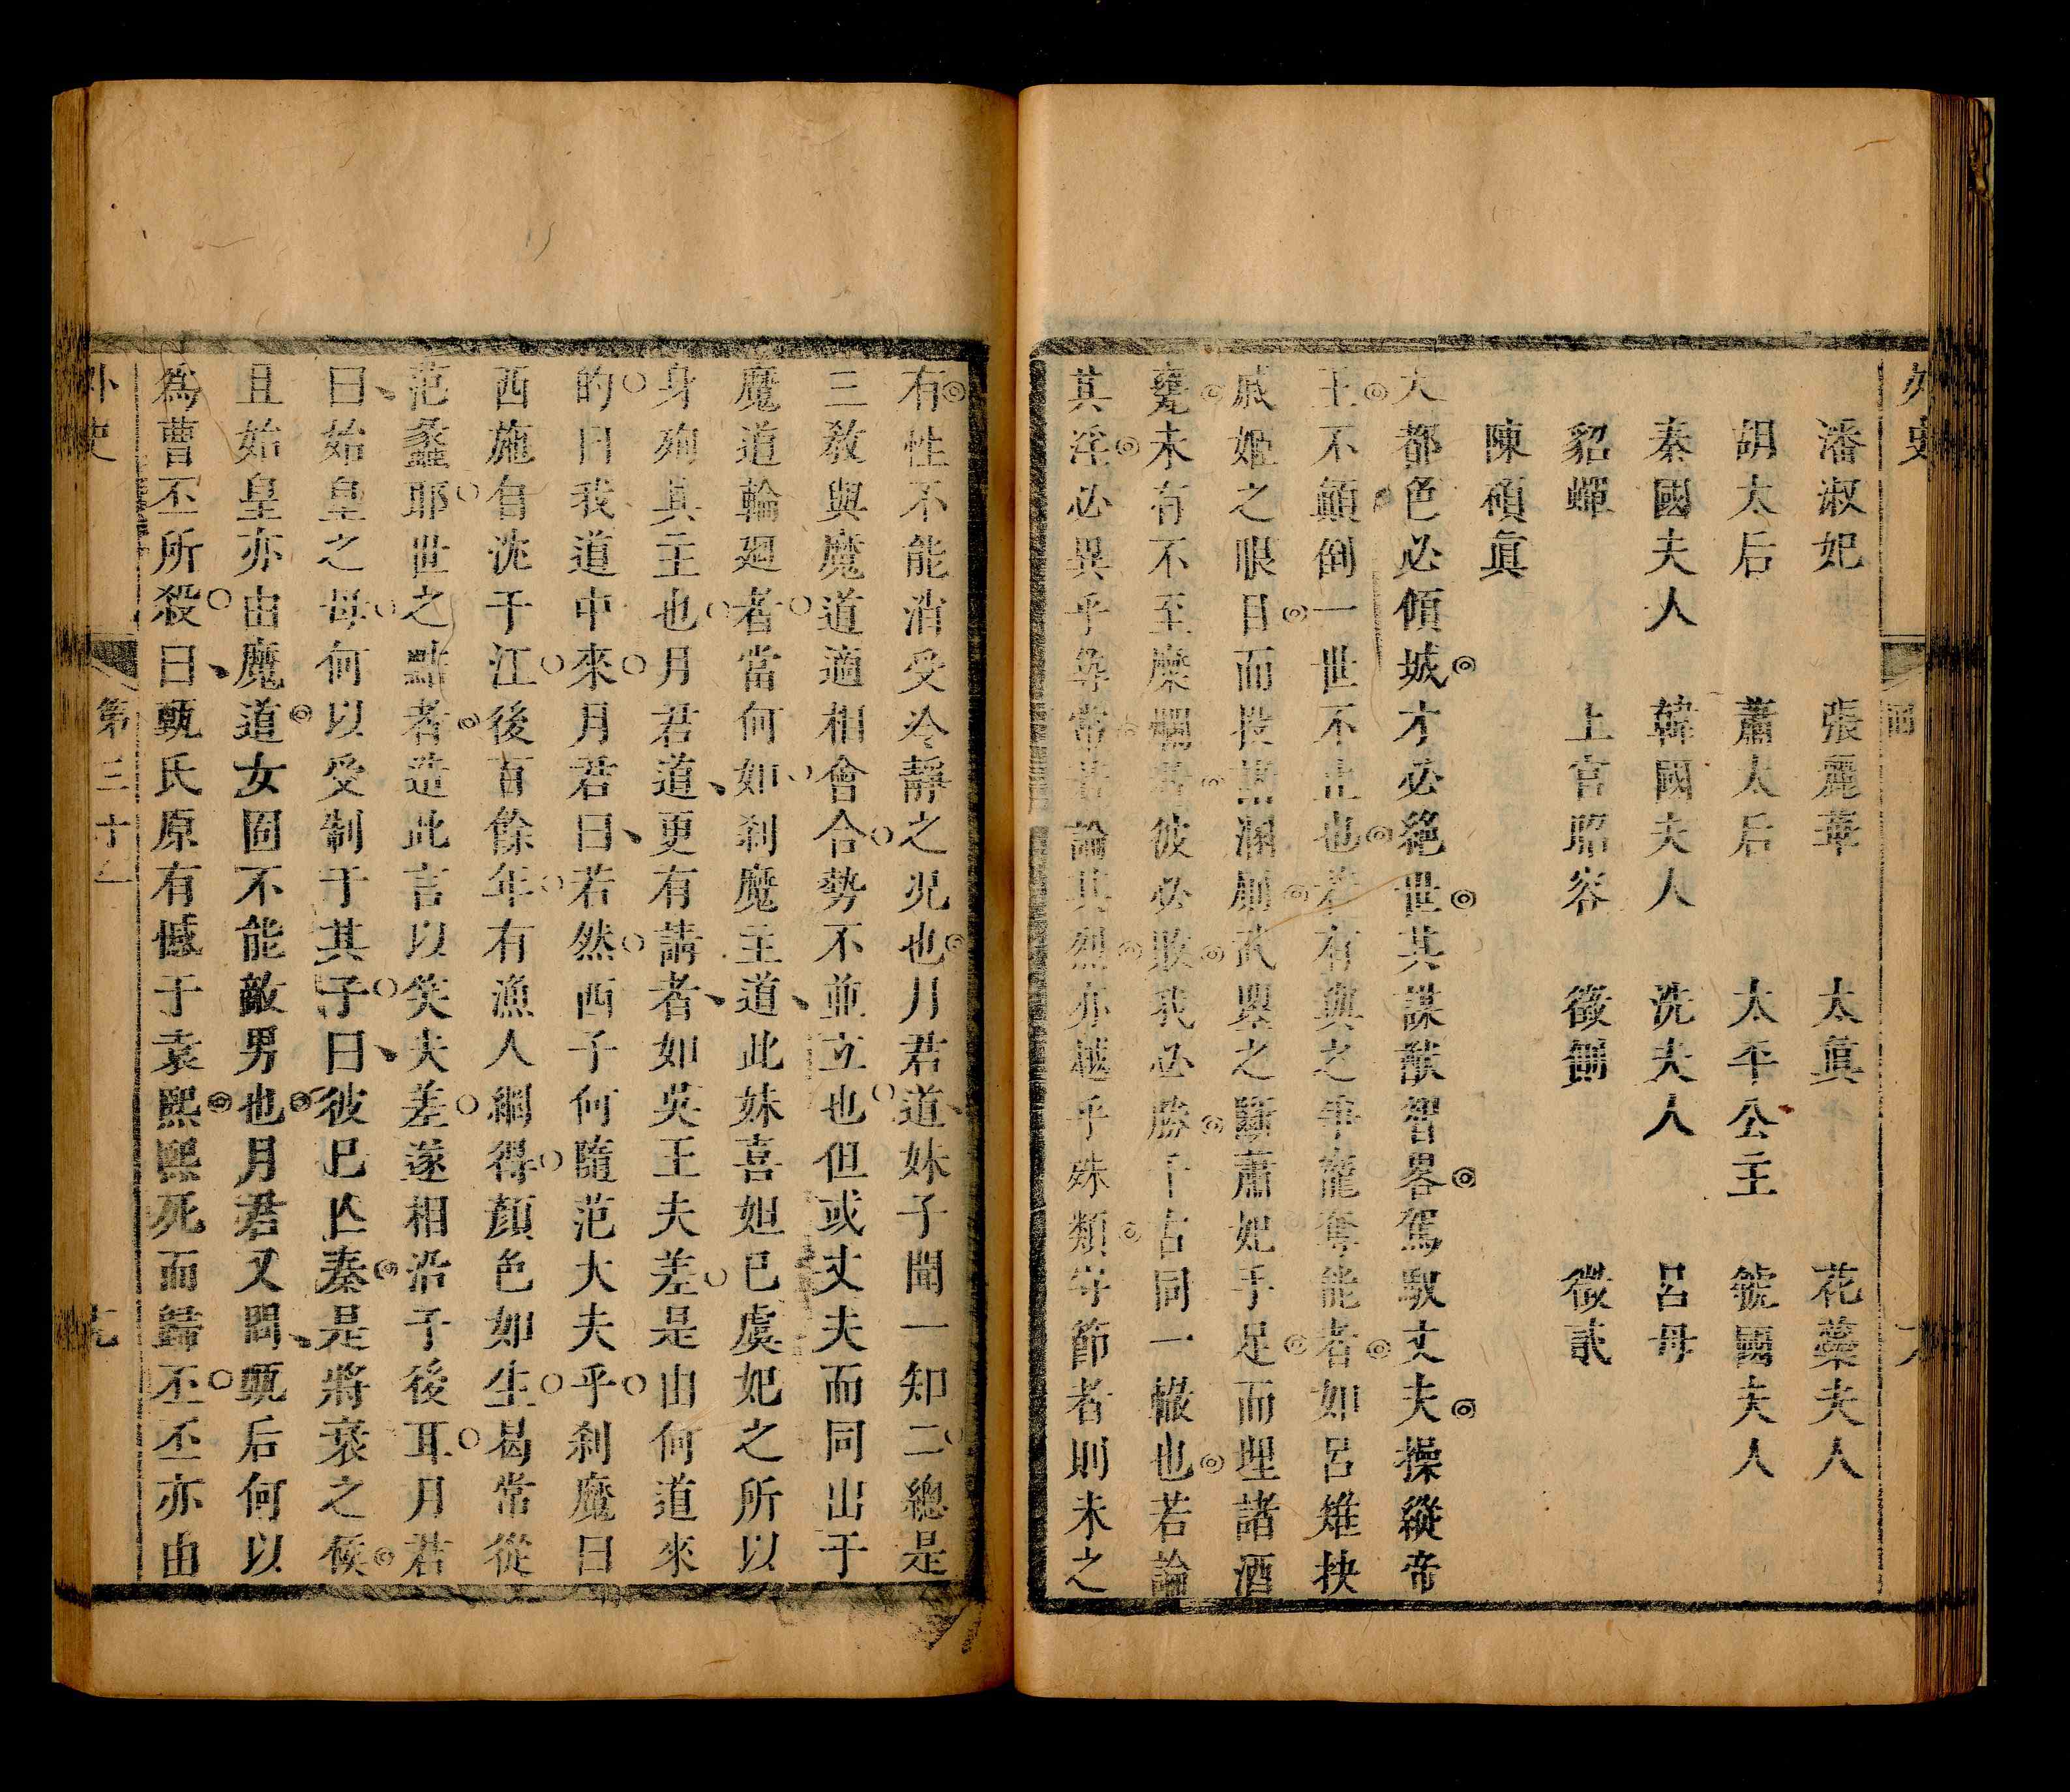 外史
潘淑妃 張麗華 太眞 花蘂夫人
胡太后 蕭太后 太平公主 虢國夫人
秦國夫人 韓國夫人 洗夫人 呂母
貂蟬 上官昭容 徵側 徵貳
陳碩眞
大都色必傾城才必絕世其謀猷智畧駕馭丈夫操縱帝
王不顛倒一世不止也若有與之爭寵奪能者如呂雉抉
戚姬之眼目而投溷厠武曌之斷蕭妃手足而埋諸酒
甕未有不至糜爛彼必敗我必勝千古同一轍也若論
其淫必異乎尋常若論其烈亦越乎殊類守節者則未之
有性不能消受冷靜之况也月君道妹子聞一知二總是
三敎與魔道適相會合勢不並立也但或丈夫而同出于
魔道輪廻者當何如刹魔主道此妹喜妲已虞妃之所以
身殉其主也月君道更有請者如吳王夫差是由何道來
的曰我道中來月君曰若然西子何隨范大夫乎刹魔曰
西施自沈于江後百餘年有漁人網得顏色如生曷常從
范蠡耶世之黠者造此言以笑夫差遂相沿于後耳月君
曰始皇之母何以受制于其子曰彼已亾秦是將衰之候
且始皇亦由魔道女固不能敵男也月君又問甄后何以
爲曹丕所殺曰甄氏原有憾于袁熙熙死而歸丕丕亦由
外史 第三十一